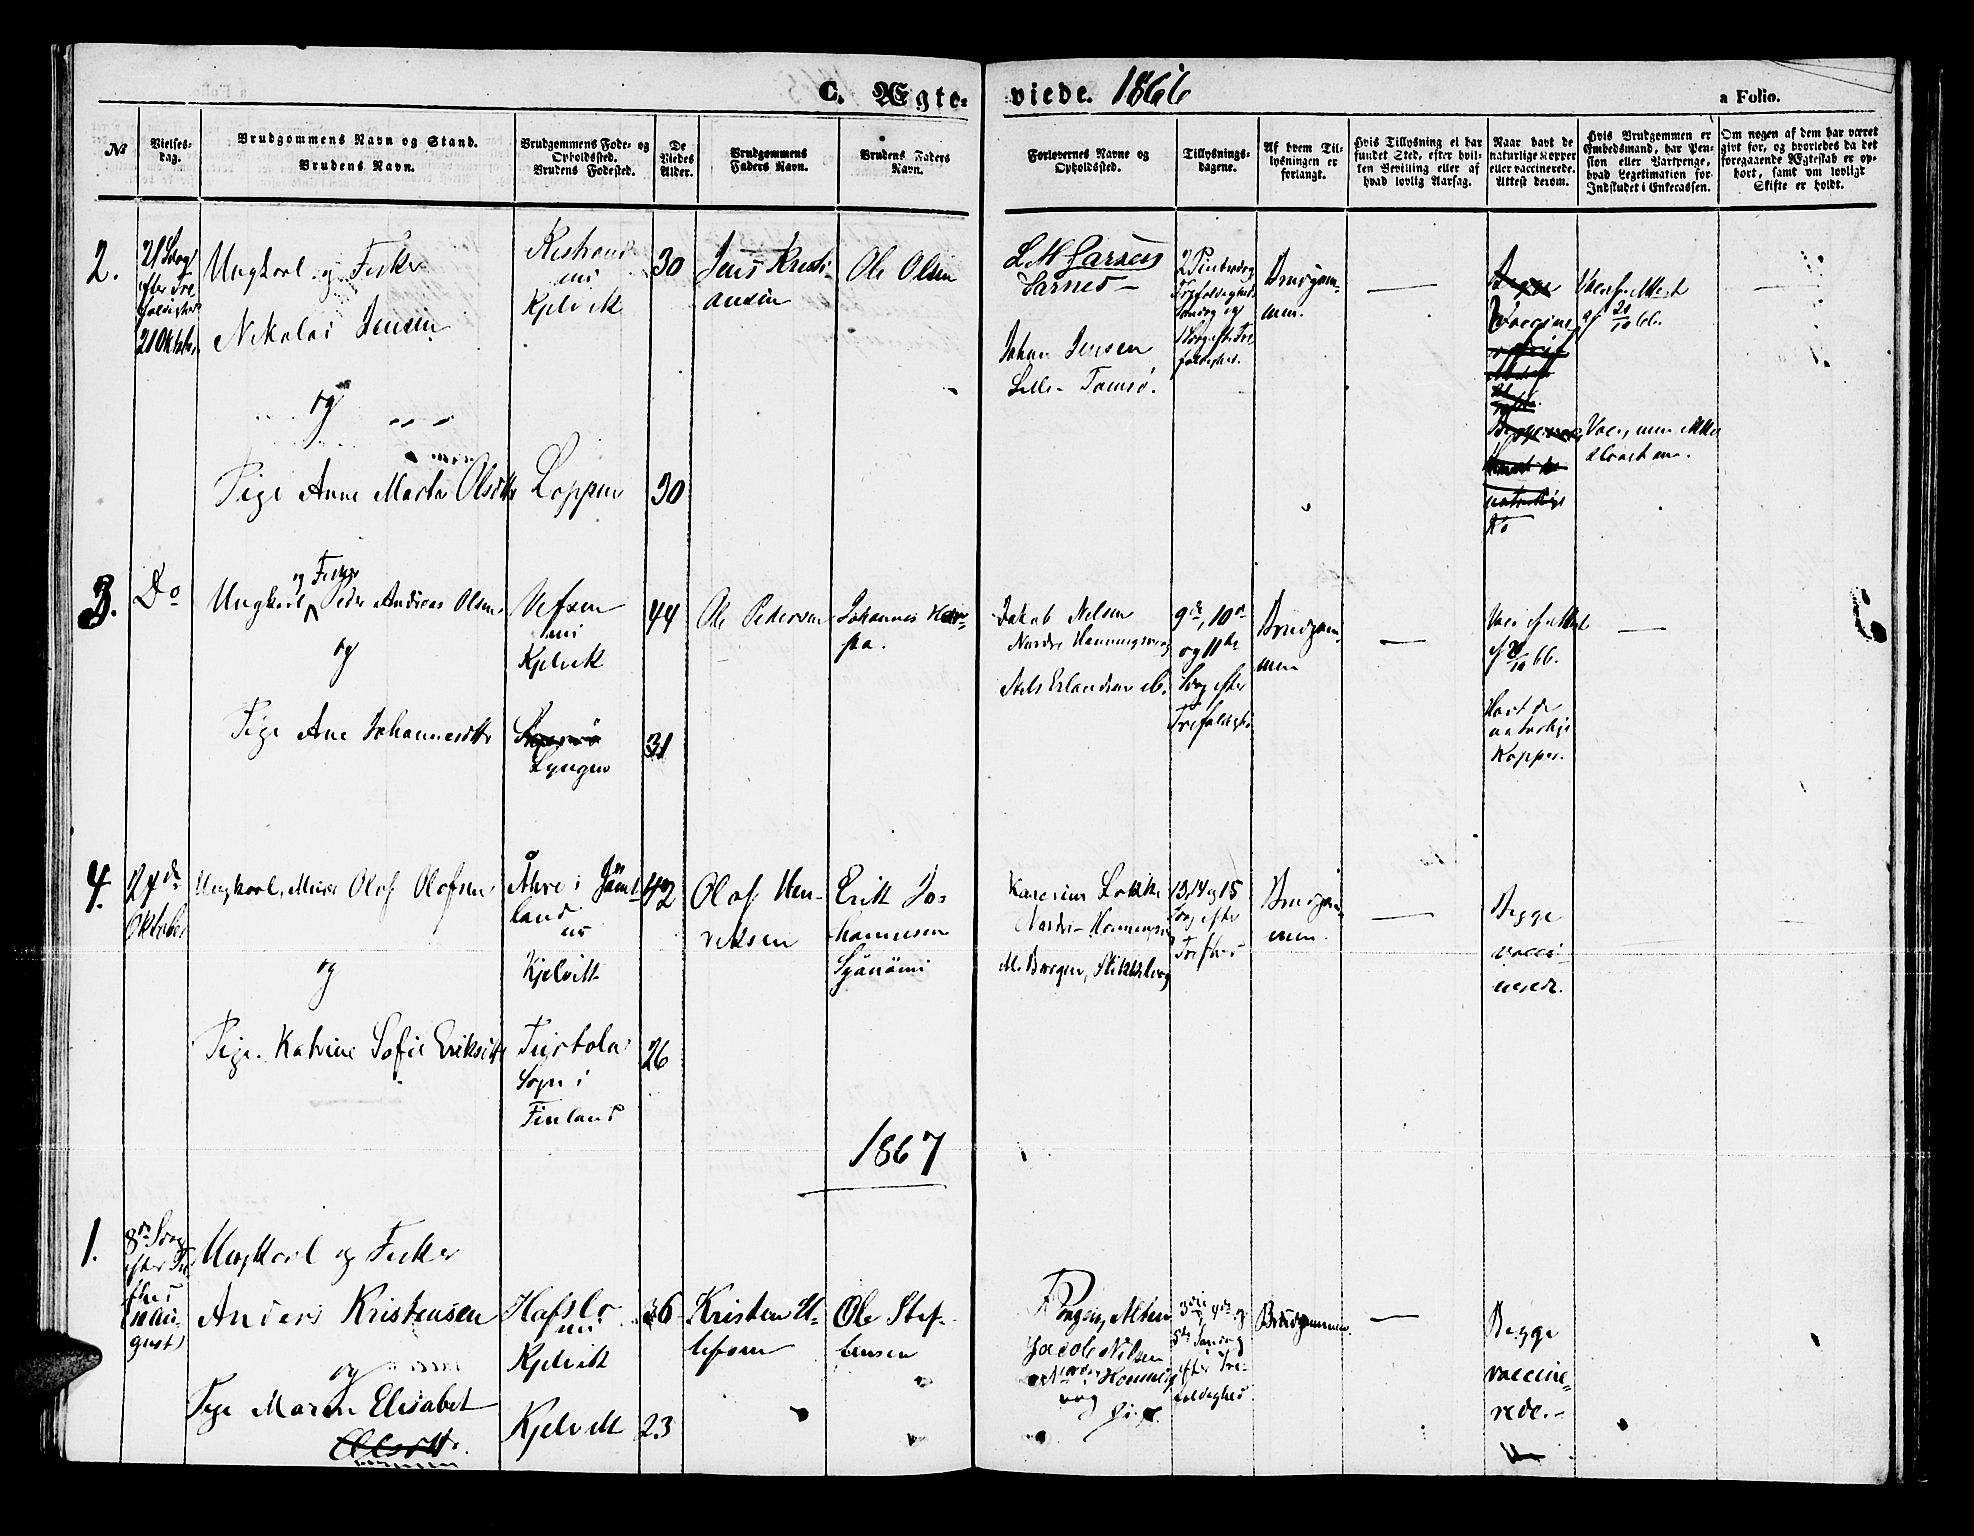 C. Ægte-
viede. 1866
a Folio.
No
Vielses-
dag.
Brudgommens Navn og Stand.
Brudens Navn.
Brudgommens Føde- og
Opholdssted.
Brudens Fødested.
De
Viedes
Alder.
Brudgommens
Faders Navn.
Brudens Faders
Navn.
Forlovernes Navne og
Opholdssted.
Tillysnings-
dagene.
Af hvem Til-
lysningen er
forlangt.
Hvis Tillysning ei har
fundet Sted, efter hvil-
ken Bevilling eller af
hvad lovlig Aarsag.
Naar havt de
naturlige Kopper
eller vaccinerede.
Attest derom.
Hvis Brudgommen er
Embedsmand, har Pen-
sion eller Vartpenge,
hvad Legitimation for
Indskudet i Enkecassen.
Om nogen af dem har været
gift før, og hvorledes da det
foregaaende Ægteskab er op-
hørt, samt om lovligt
Skifte er holdt.
2.
21 Søndg
efter Tre
foldighed
21 Oktober
Ungkarl og Fisker
Nikolai Jensen
og
Pige Anne Marta Olsdtr
Kistrand
Kjelvik
Loppen
30
30
Jens Kristi-
ansen
Ole Olsen
L M Larsen
Sarnes
Johan Jensen
Lille-Tamsø.
2 Pintsedag
Trefoldigheds
Søndag og
1 Søndg efter Tre
foldighed.
Brudgom-
men.
—
Begge
Vaccine
naturlige
Do
Vacc. Attest
af 20/10 66.
Vacc, men ikke
—
3.
Do
og Fisker
Ungkarl Peder Andreas Olsen
og
Pige Ane Johannesdtr
Vefsen
Kjelvik
Lyngen
44
31
Ole Pedersen
Johannes
Jakob Nilsen
Nordre Honningsvaag
Nils Erlandsen
9de, 10de
og 11te
Søndg efter
Trefoldighed
Brudgom-
men
—
Vacc. Attest
af 20/10 66.
Havt de
naturlige
Kopper.
—
4.
27de
Oktober
Ungkarl, Murer Olof Olofsen
og
Pige Katrine Sofie Eriksdtr
Åhre i Jämt-
land
Kjelvik
Turtola
Sogn i
Finland
42
26
Olof Hen-
riksen
Erik Jo-
hannesen
13, 14 og 15
Søndg efter
Trefhed
Brudgom-
men.
—
Begge
vacci-
nerede.
1867
1.
8de Søndg
efter Tre
fhed
August)
Ungkarl og Fisker
Anders Kristensen
og
Pige Maren Elisabet
Olsdtr.
Hafslo
Kjelvik
Kjelvik
36
23
Kristen U-
lefsen
Ole Stef-
fensen
Jacob Nilsen
3die, 4de og
5te Søndag
efter Tre-
foldighed
Brudgommen.
—
Begge
vaccine-
rede.-